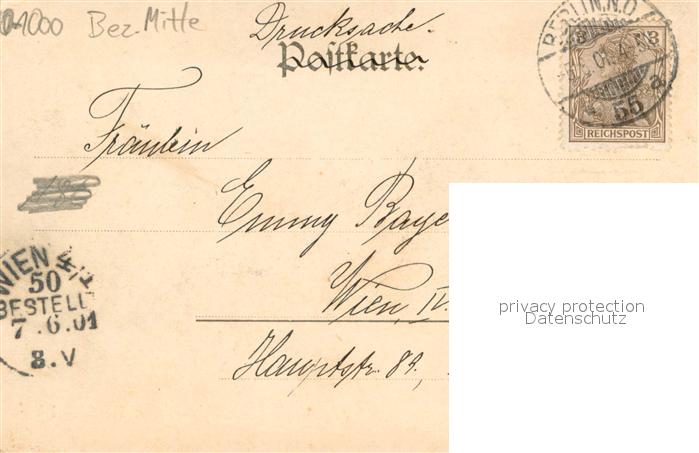 1000 Bez. Mitte
Drucksache.
Postkarte.
BERLIN, N.O.
55 a
3 3
REICHSPOST
Fräulein
Emmy Baye
Wien, IV.
Hauptstr. 89.
WIEN 4/1
50
BESTELLT
7.6.01
8.V
privacy protection
Datenschutz